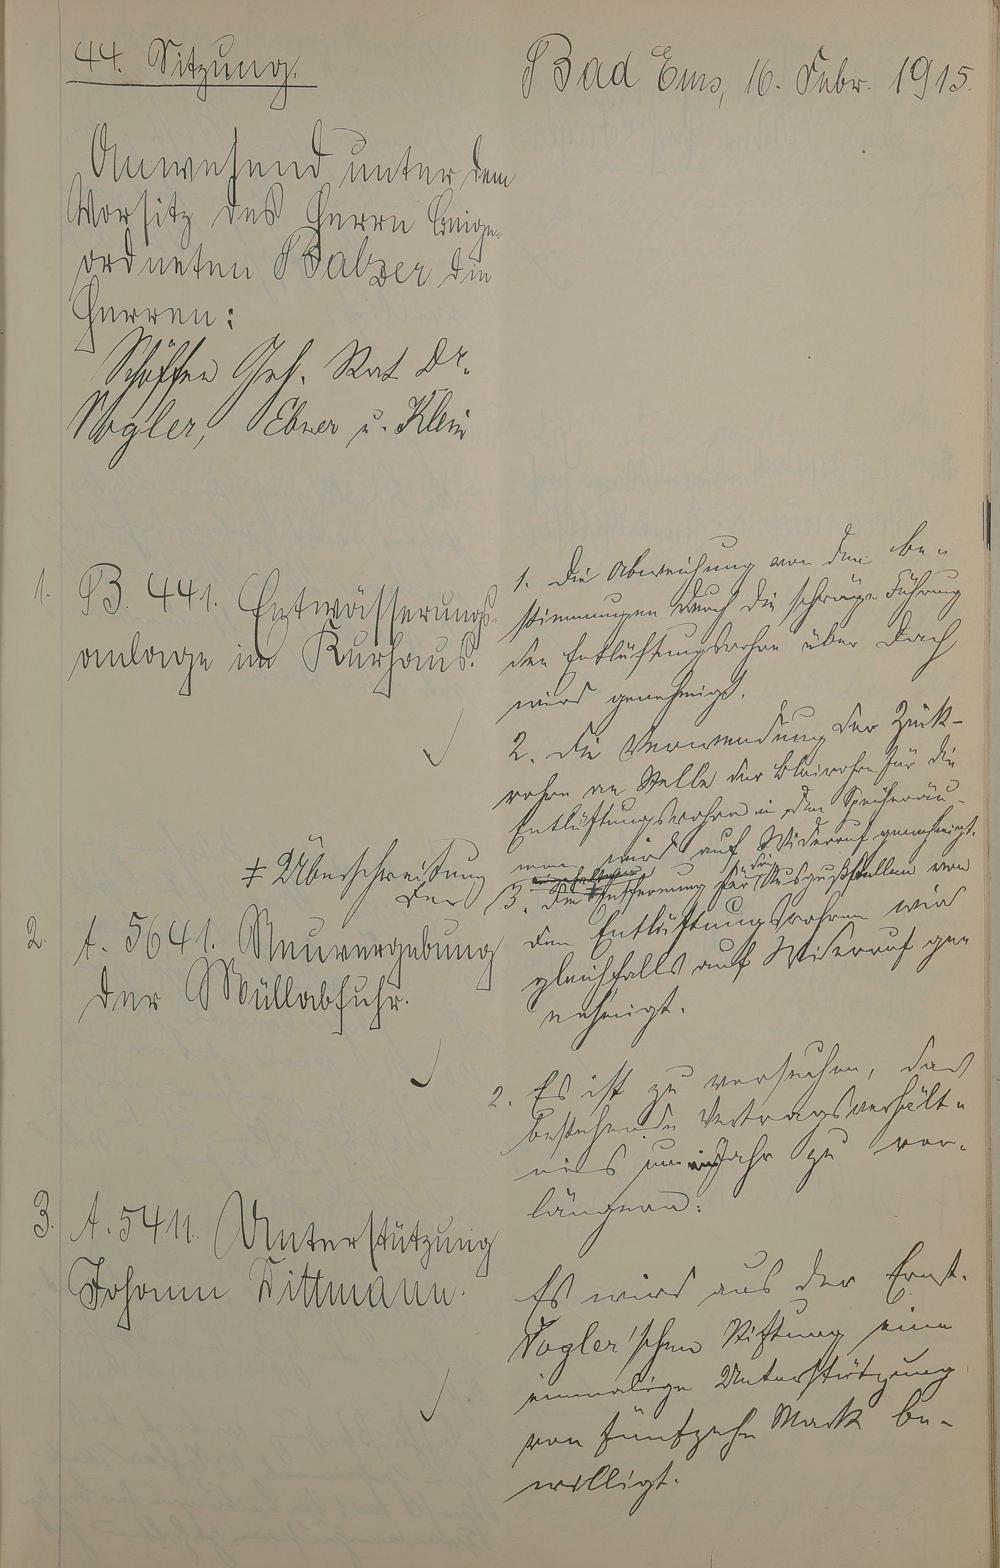 44. Sitzung.
Bad Ems, 16. Febr. 1915.
Anwesend unter dem
Vorsitz des Herrn Beige-
ordneten Balzer die
Herren:
Schöffen Geh. Rat Dr.
Vogler, Ebner u. Klein
1. B. 441. Entwässerungs-
anlage im Kurhaus.
1. Die Abweichung von den Be-
stimmungen durch die schräge Führung
der Entlüftungsrohre über Dach
wird genehmigt.
2. Die Verwendung der Zink-
rohre an Stelle der Bleirohre für die
Entlüftungsrohre in den Speicheräu-
men wird auf Widerruf genehmigt.
3. Die Entfernung für die Ausgußstellen von
den Entlüftungsrohren wird
gleichfalls auf Widerruf ge-
nehmigt.
+ Überschreitung
der
2. A. 5641. Neuvergebung
der Müllabfuhr.
2. Es ist zu versuchen, das
bestehende Vertragsverhält-
nis um ein Jahr zu ver-
längern.
3. A. 5411. Unterstützung
Johann Dittmann.
Es wird aus der Ernst-
Vogler'schen Stiftung eine
einmalige Unterstützung
von fünfzehn Mark be-
willigt.